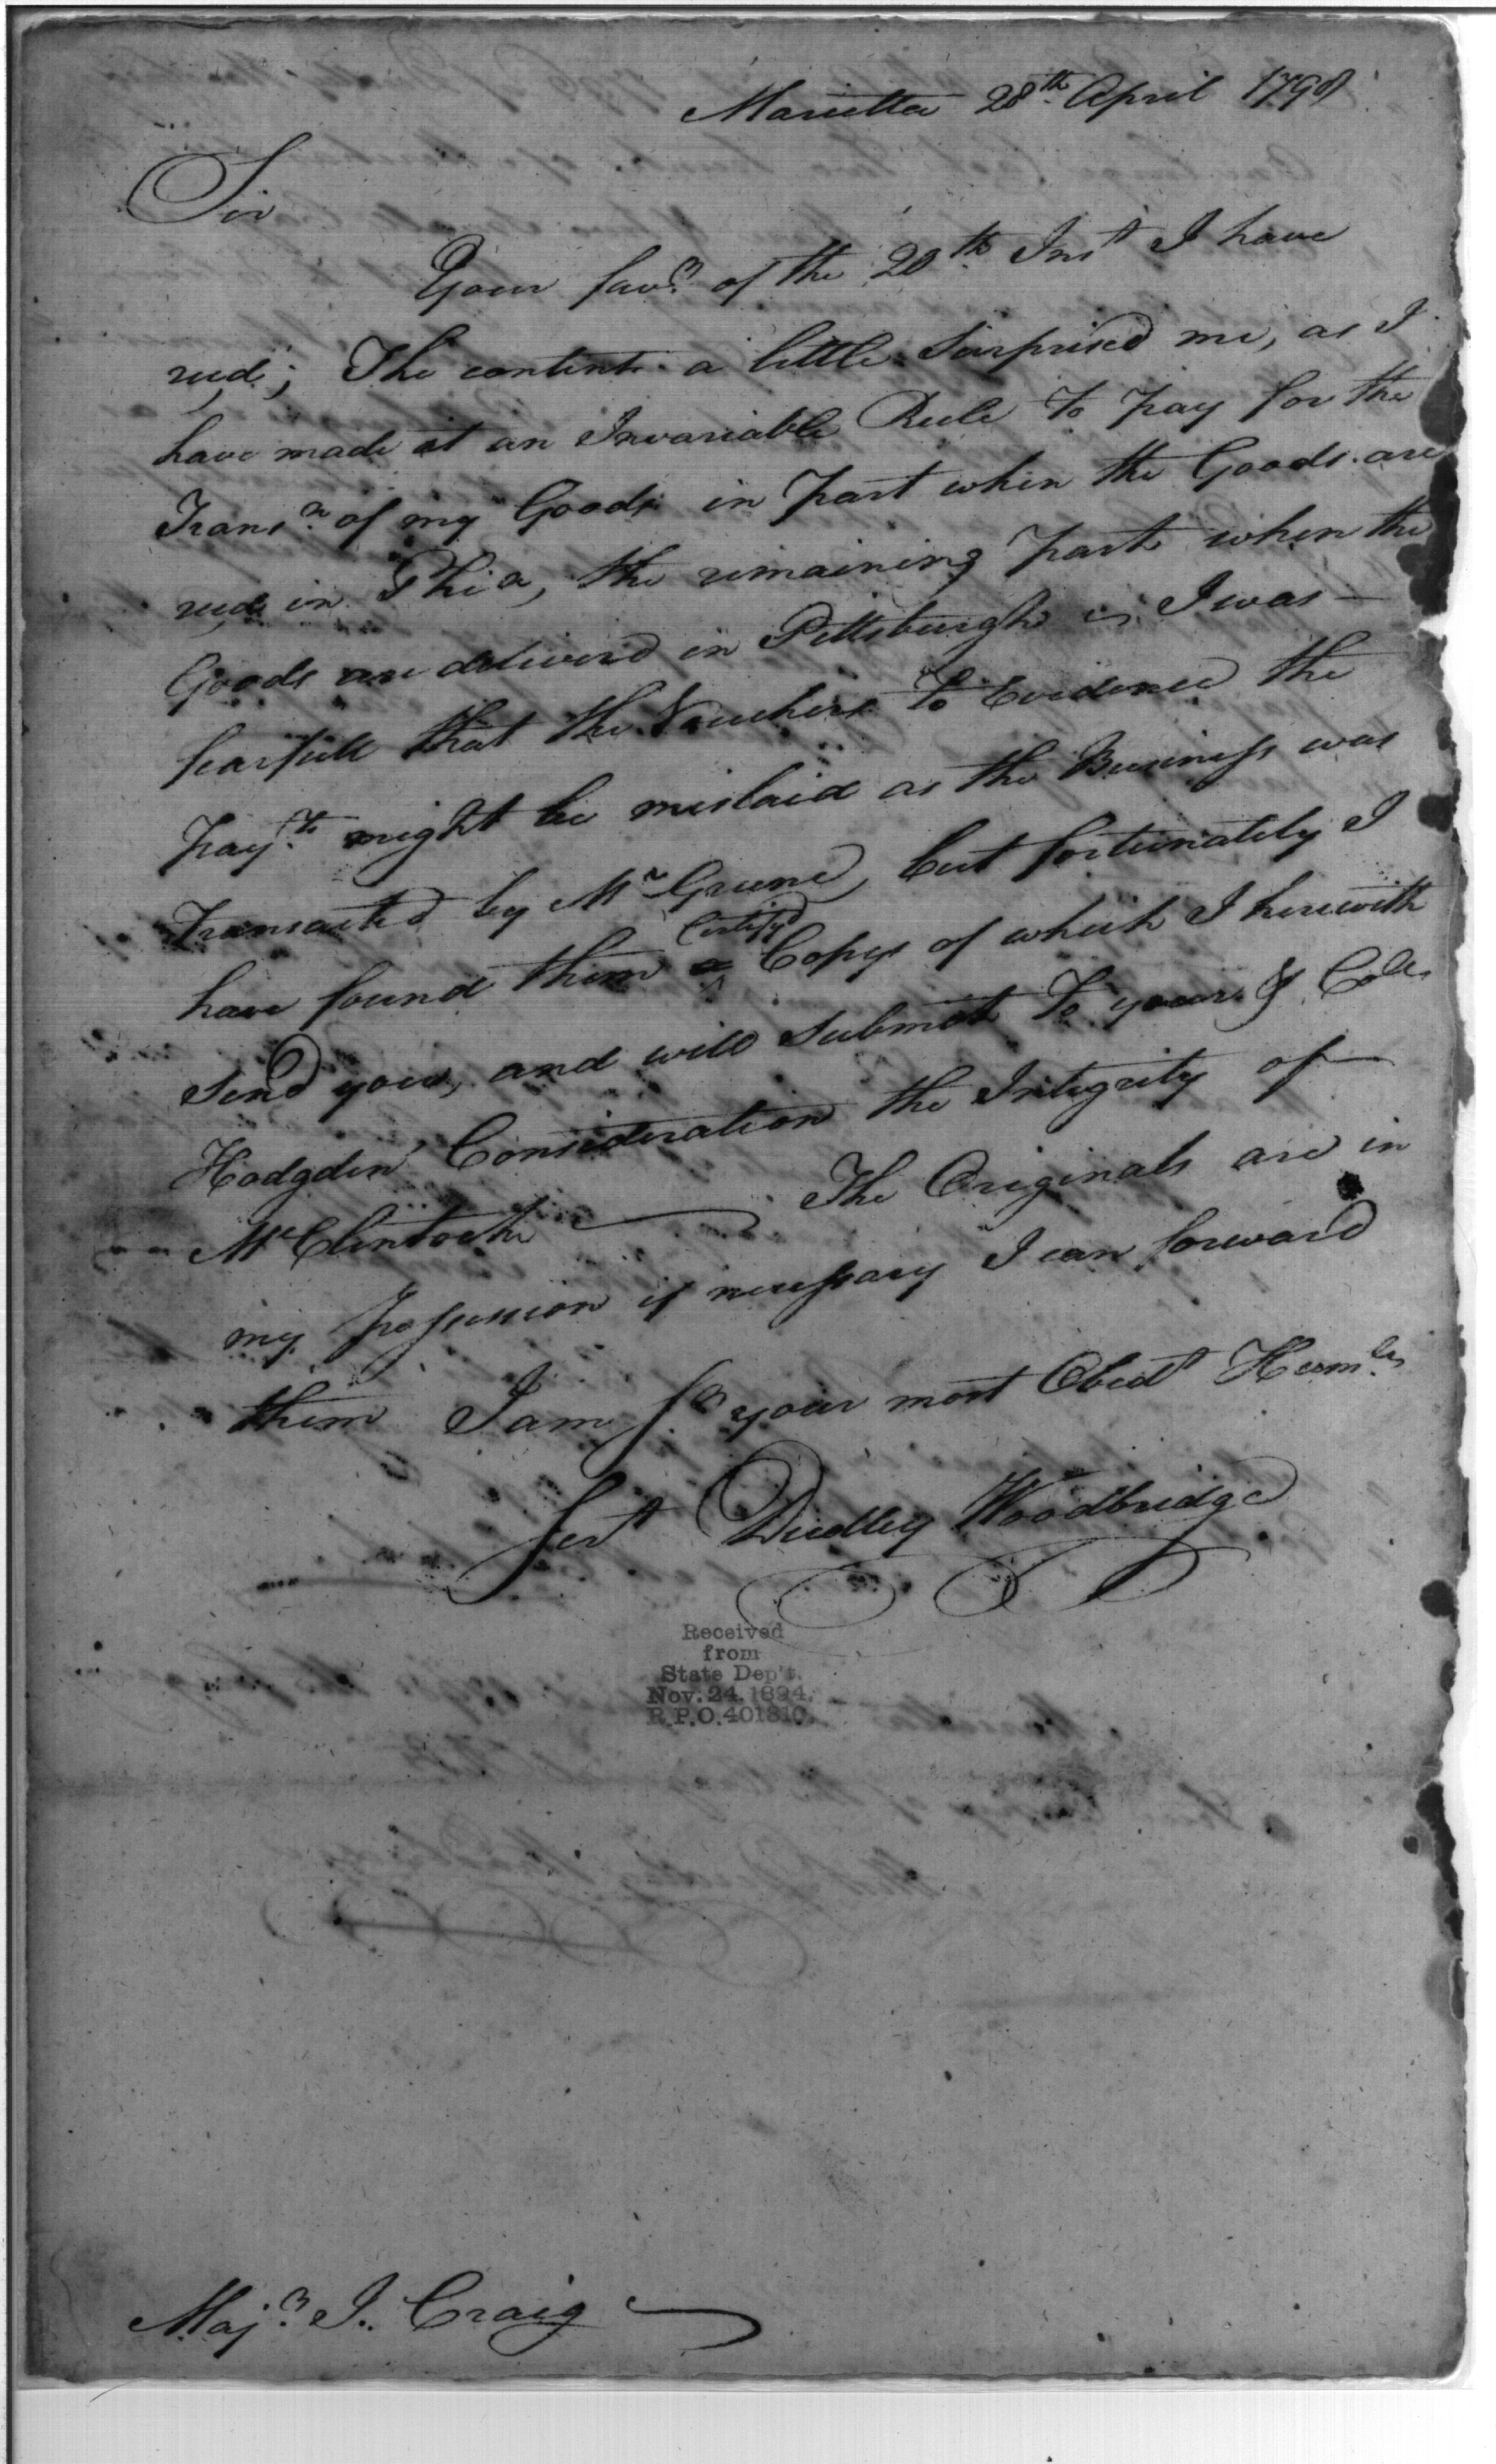 Marietta 28th April 1798
Sir
Your favr of the 20th Inst I have
recd; The contents a little Surprised me, as I
have made it an Invariable Rule to pay for the
Transn of my Goods in part when the Goods are
recd in Phia, the remaining part when the
Goods are deliverd in Pittsburgh I was
fearfull that the Vouchers to Evidence the
Payts might be mislaid as the Business was
Transacted by Mr Greene, but fortunately I
Certifyd
have found them Copys of which I herewith
Send you, and will Submit to your & Colls
Hodgden Consideration the Integrity of
McClintock The Originals are in
my possession if necessary I can forward
them I am Sr your most Obedt Humle
Sert Dudley Woodbridge
Received
from
State Dep't.
Nov. 24. 1894.
R.P.O. 401810.
Majr I. Craig